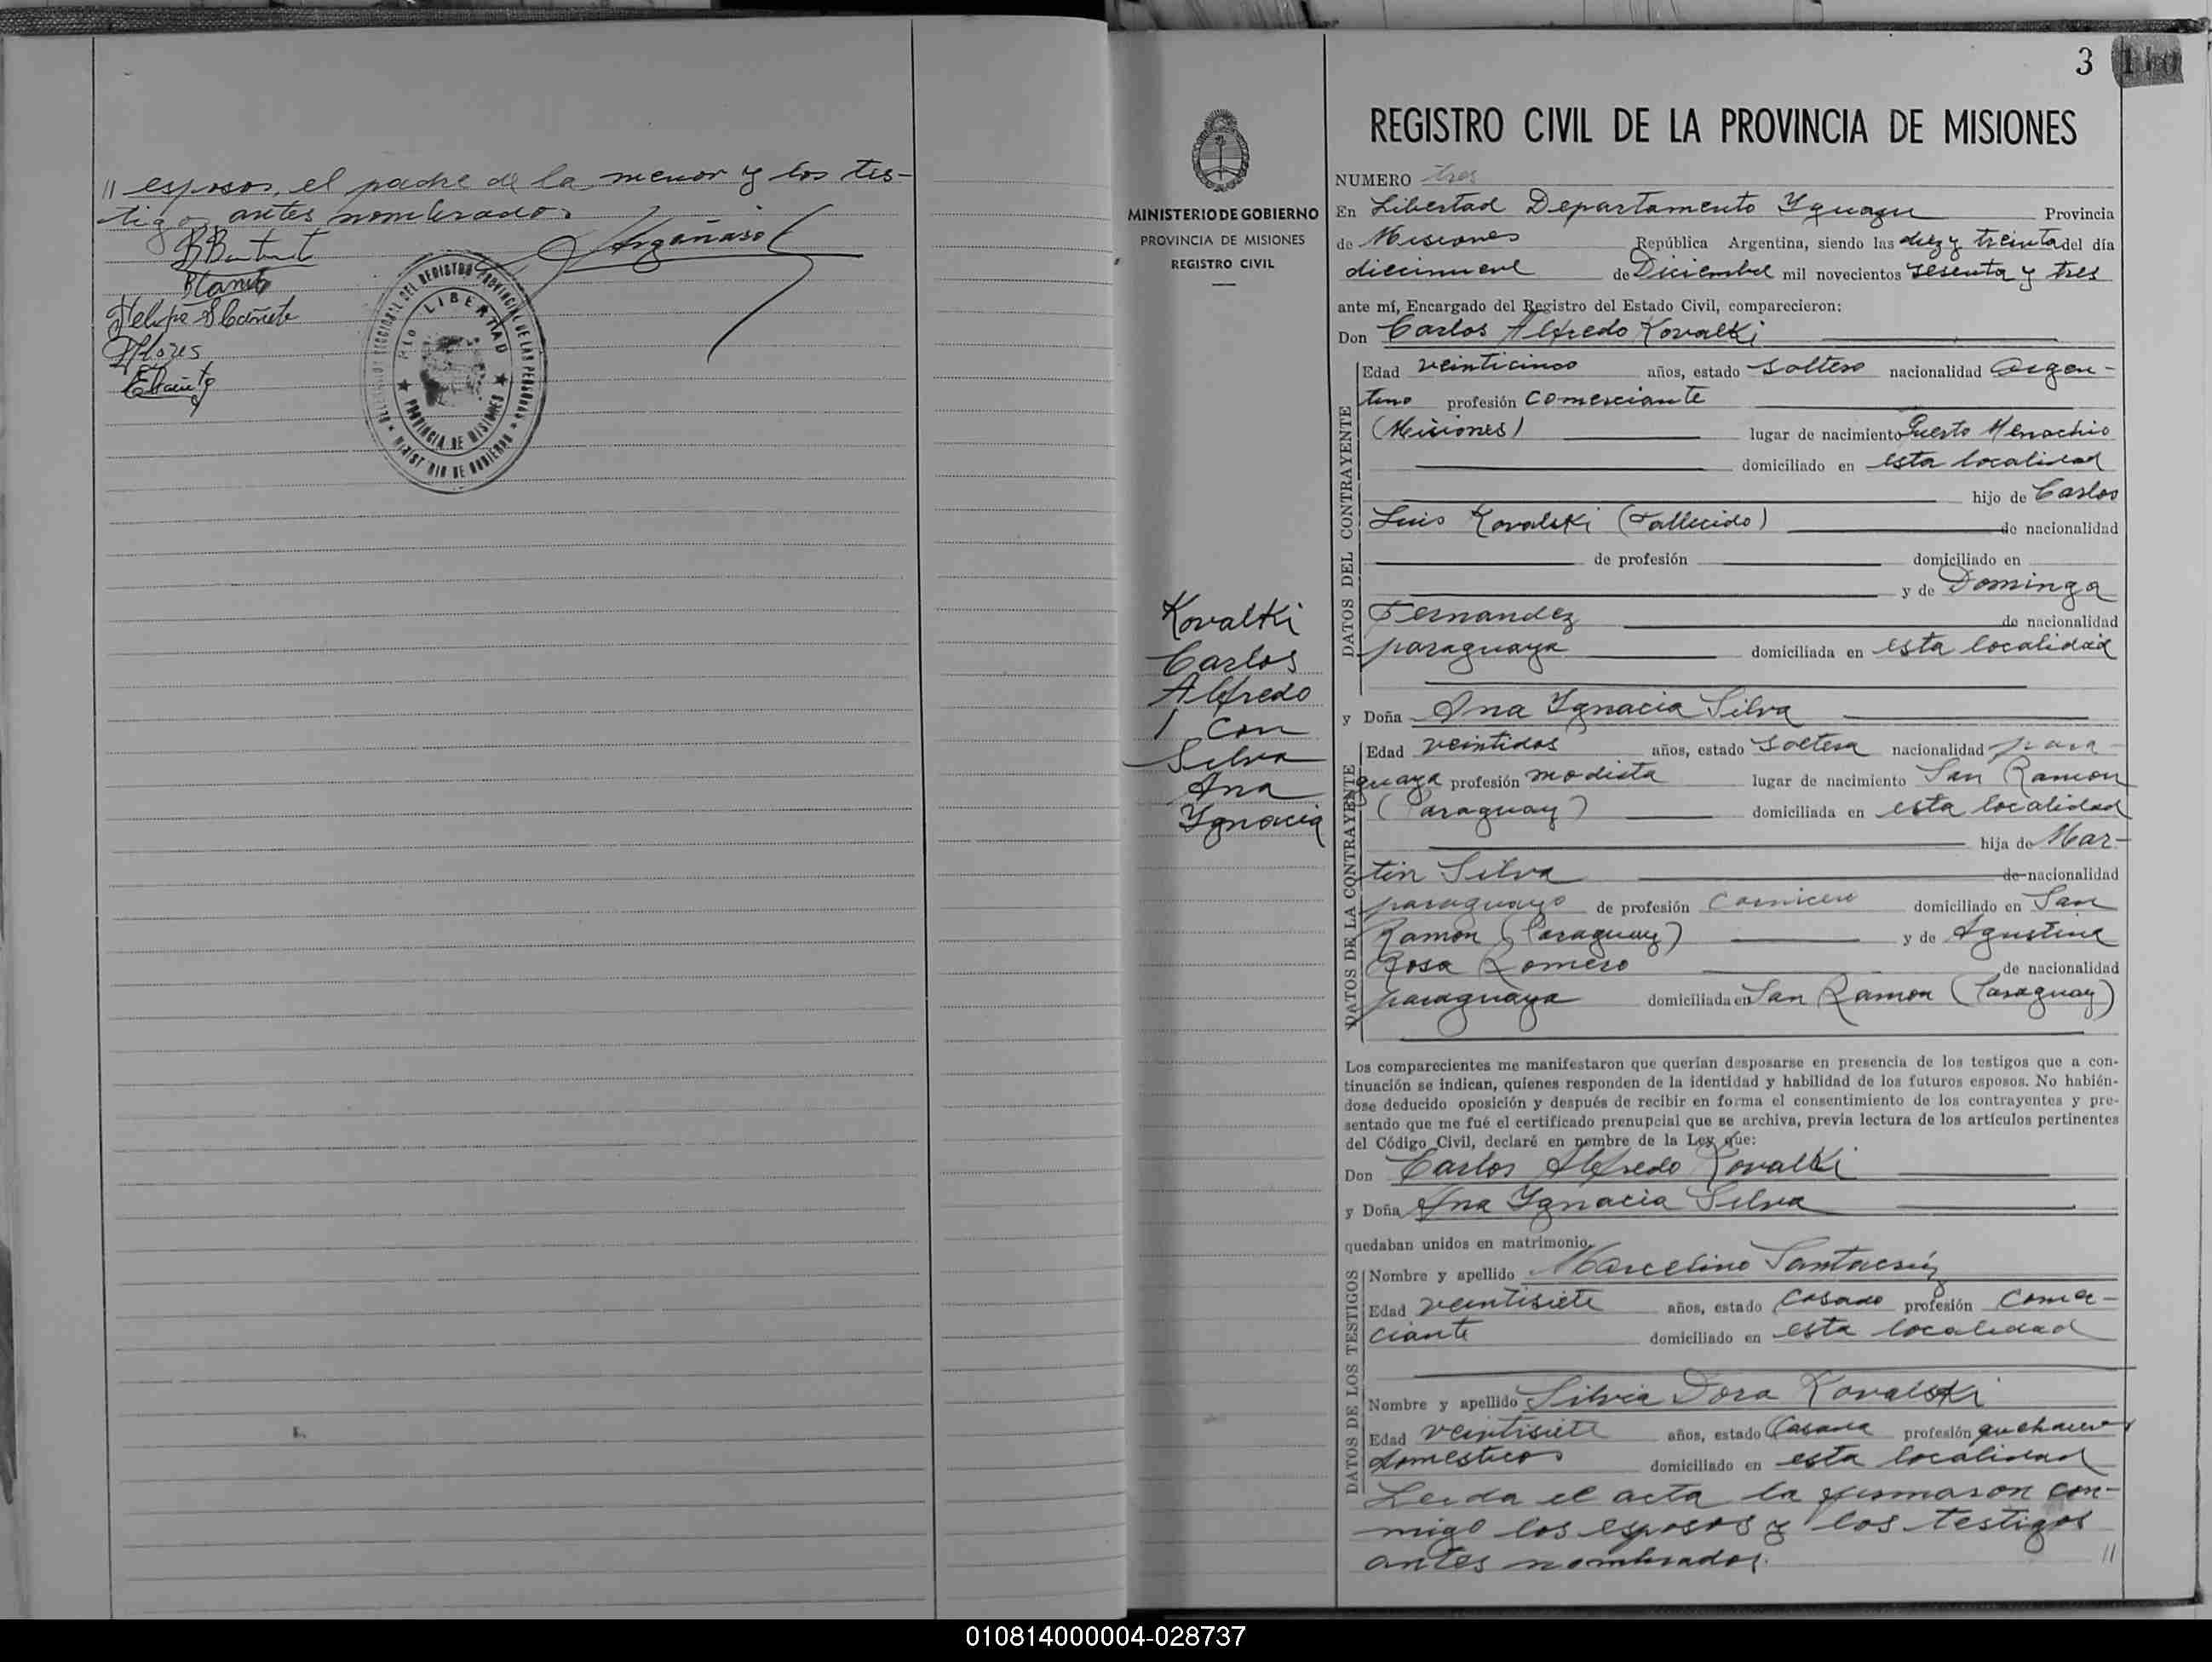 // esposos, el padre de la menor y los tes-
tigos antes nombrados.
Argañaraso
Felipe S Cañete
Flores
ECañete
REGISTRO PROVINCIAL DE LAS PERSONAS
LIBERTAD
PROVINCIA DE MISIONES
MINISTERIO DE GOBIERNO
3
MINISTERIO DE GOBIERNO
PROVINCIA DE MISIONES
REGISTRO CIVIL
Kovalki
Carlos
Alfredo
con
Silva
Ana
Ygnacia
REGISTRO CIVIL DE LA PROVINCIA DE MISIONES
NUMERO tres
En Libertad Departamento Yguazu Provincia
de Misiones República Argentina, siendo las diez y treinta del día
diecinueve de Diciembre mil novecientos sesenta y tres
ante mí, Encargado del Registro del Estado Civil, comparecieron:
Don Carlos Alfredo Kovalki
DATOS DEL CONTRAYENTE
Edad veinticinco años, estado soltero nacionalidad Argen-
tino profesión comerciante
(Misiones) lugar de nacimiento Puerto Menochio
domiciliado en esta localidad
hijo de Carlos
Luis Kovalski (Fallecido) de nacionalidad
de profesión domiciliado en
y de Dominga
Fernandez de nacionalidad
paraguaya domiciliada en esta localidad
y Doña Ana Ygnacia Silva
DATOS DE LA CONTRAYENTE
Edad veintidos años, estado soltera nacionalidad para-
guaya profesión modista lugar de nacimiento San Ramon
(Paraguay) domiciliada en esta localidad
hija de Mar-
tin Silva de nacionalidad
paraguayo de profesión carnicero domiciliado en San
Ramon (Paraguay) y de Agustina
Rosa Romero de nacionalidad
paraguaya domiciliada en San Ramon (Paraguay)
Los comparecientes me manifestaron que querían desposarse en presencia de los testigos que a con-
tinuación se indican, quienes responden de la identidad y habilidad de los futuros esposos. No habién-
dose deducido oposición y después de recibir en forma el consentimiento de los contrayentes y pre-
sentado que me fué el certificado prenupcial que se archiva, previa lectura de los artículos pertinentes
del Código Civil, declaré en nombre de la Ley que:
Don Carlos Alfredo Kovalki
y Doña Ana Ygnacia Silva
quedaban unidos en matrimonio.
DATOS DE LOS TESTIGOS
Nombre y apellido Marcelino Santacruz
Edad veintisiete años, estado casado profesión comer-
ciante domiciliado en esta localidad
Nombre y apellido Silvia Dora Kovalski
Edad veintisiete años, estado Casada profesión quehaceres
domesticos domiciliado en esta localidad
Leida el acta la firmaron con-
migo los esposos y los testigos
antes nombrados. //
010814000004-028737